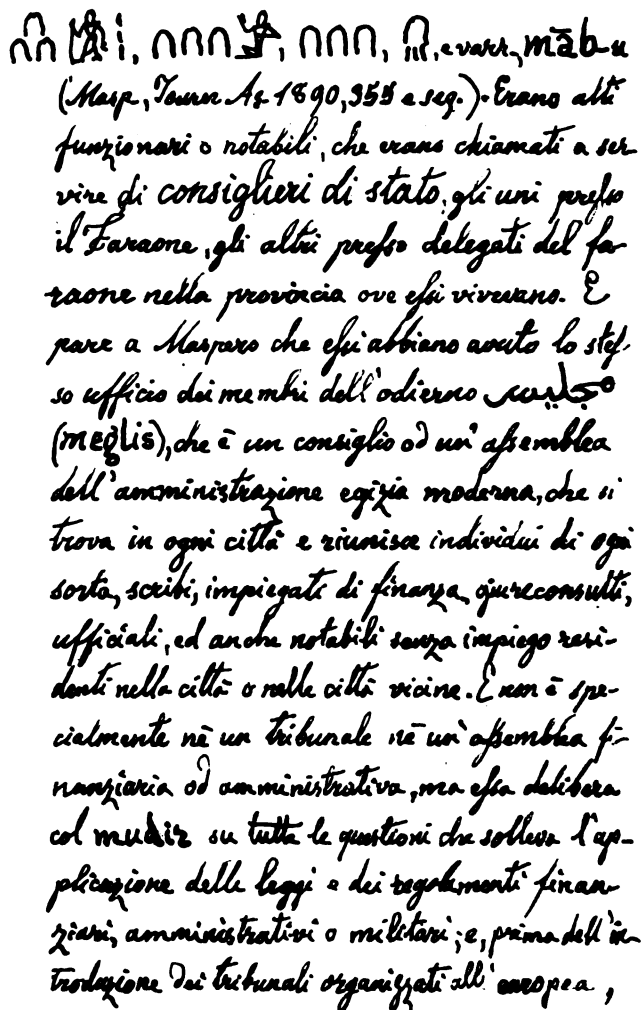 e varr., māb-u
(Masp, Journ As 1890, 355 e seg.). Erano alti
funzionari o notabili, che erano chiamati a ser
vire di consiglieri di stato, gli uni presso
il Faraone, gli altri presso delegati del fa-
raone nella provincia ove essi vivevano. E
pare a Maspero che essi abbiano avuto lo stes-
so ufficio dei membri dell'odierno
(meglis), che è un consiglio od un'assemblea
dell'amministrazione egizia moderna, che si
trova in ogni città e riunisce individui di ogni
sorta, scribi, impiegati di finanza, giureconsulti,
ufficiali, ed anche notabili senza impiego resi-
denti nella città o nelle città vicine. E non è spe-
cialmente nè un tribunale nè un'assemblea fi-
nanziaria od amministrativa, ma essa delibera
col mudir su tutte le questioni che solleva l'ap-
plicazione delle leggi e dei regolamenti finan-
ziari, amministrativi o militari; e, prima dell'in-
troduzione dei tribunali organizzati all'europea,